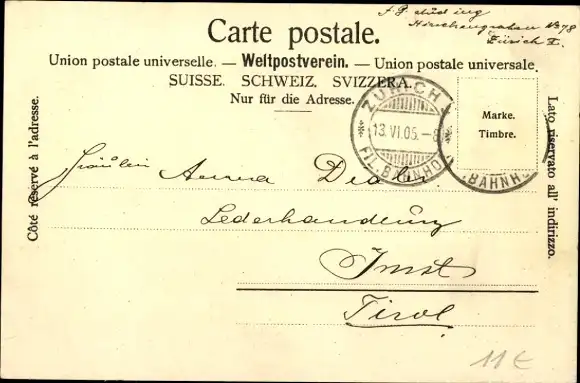 Hirschengraben No 78
Zürich I.
Carte postale.
Union postale universelle. — Weltpostverein. — Unione postale universale.
SUISSE. SCHWEIZ. SVIZZERA.
Nur für die Adresse.
Côté réservé à l'adresse.
ZÜRICH
13.VI.05.–8
FIL. BAHNHOF
Marke.
Timbre.
BAHNH
Lato riservato all' indirizzo.
Fräulein Anna
Lederhandlung
Imst
Tirol
11€